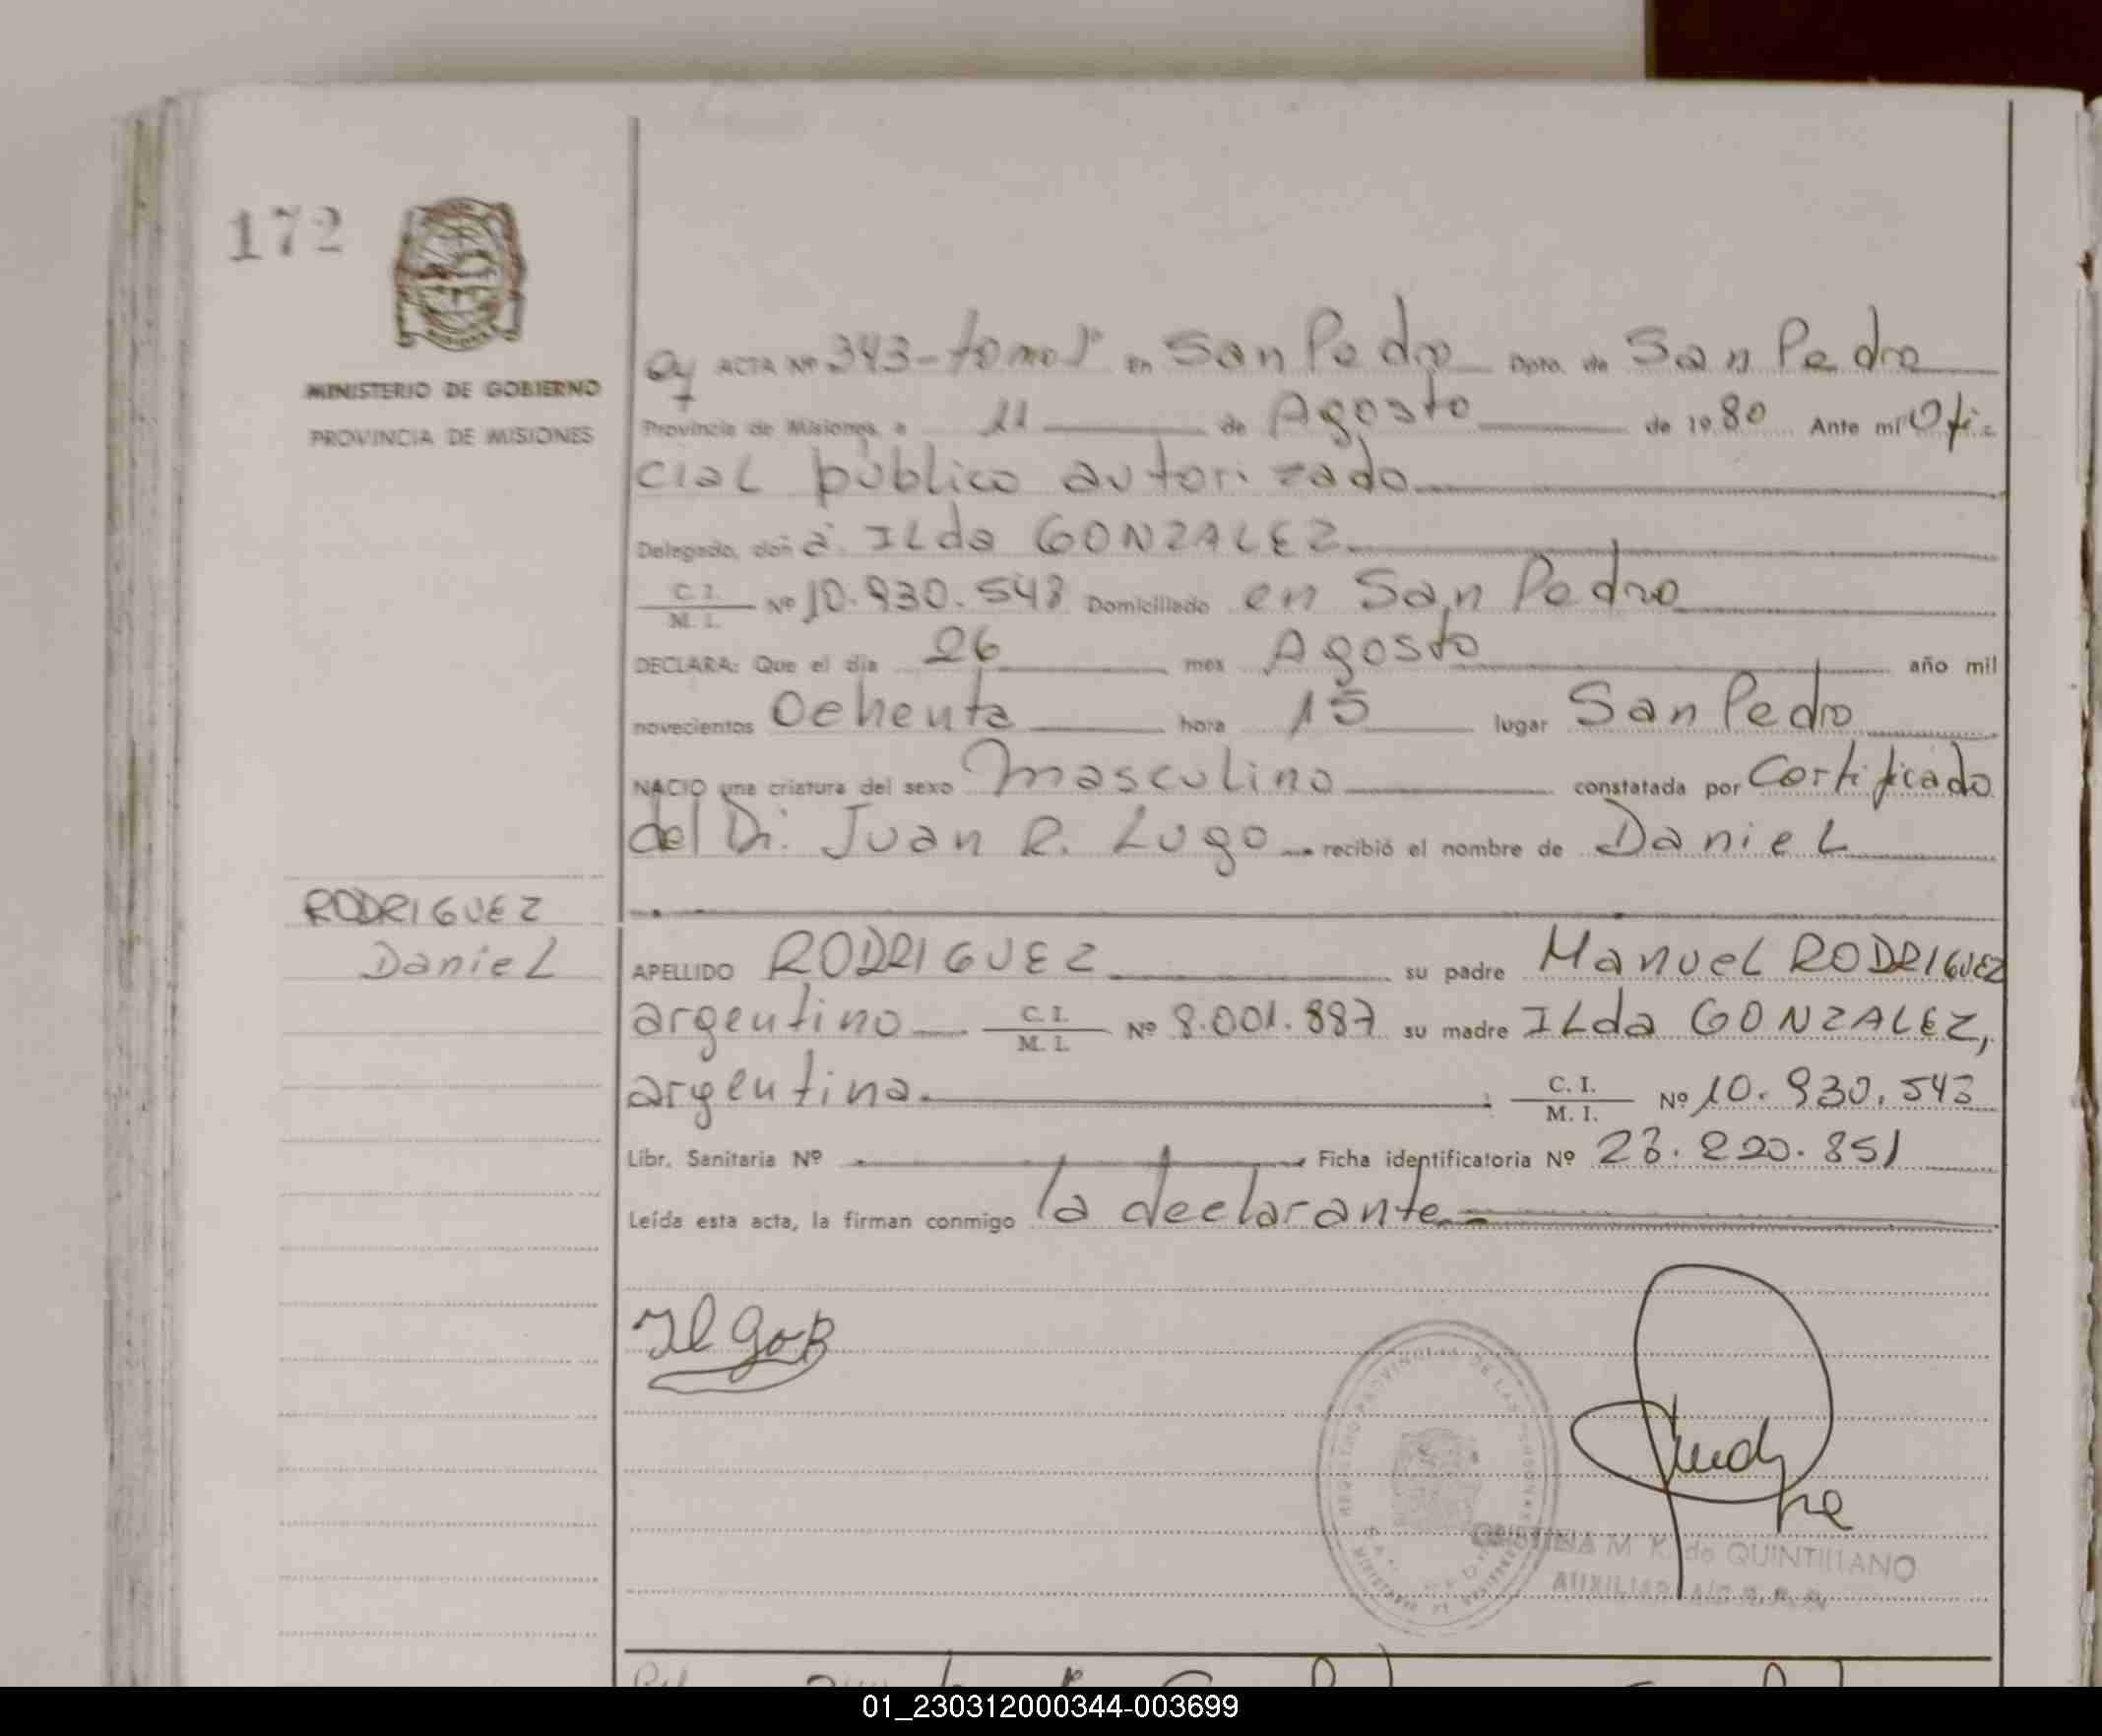 172
MINISTERIO DE GOBIERNO
PROVINCIA DE MISIONES
ACTA Nº 343-tomo 1º en San Pedro Dpto. de San Pedro
Provincia de Misiones a 11 de Agosto de 1980 Ante mí Ofi-
cial público autorizado
Delegado, doña. ILda GONZALEZ
C. I. / M. I. Nº 10.930.543 Domiciliado en San Pedro
DECLARA: Que el día 06 mes Agosto año mil
novecientos Ochenta hora 15 lugar San Pedro
NACIO una criatura del sexo Masculino constatada por Certificado
del Dr. Juan R. Lugo recibió el nombre de DanieL
RODRIGUEZ
DanieL
APELLIDO RODRIGUEZ su padre ManueL RODRIGUEZ
argentino C. I. / M. I. Nº 8.001.887 su madre ILda GONZALEZ,
argentina. C. I. / M. I. Nº 10.930.543
Libr. Sanitaria Nº Ficha identificatoria Nº 28.220.851
Leída esta acta, la firman conmigo la declarante
M. K. de QUINTILIANO
AUXILIAR
01_230312000344-003699